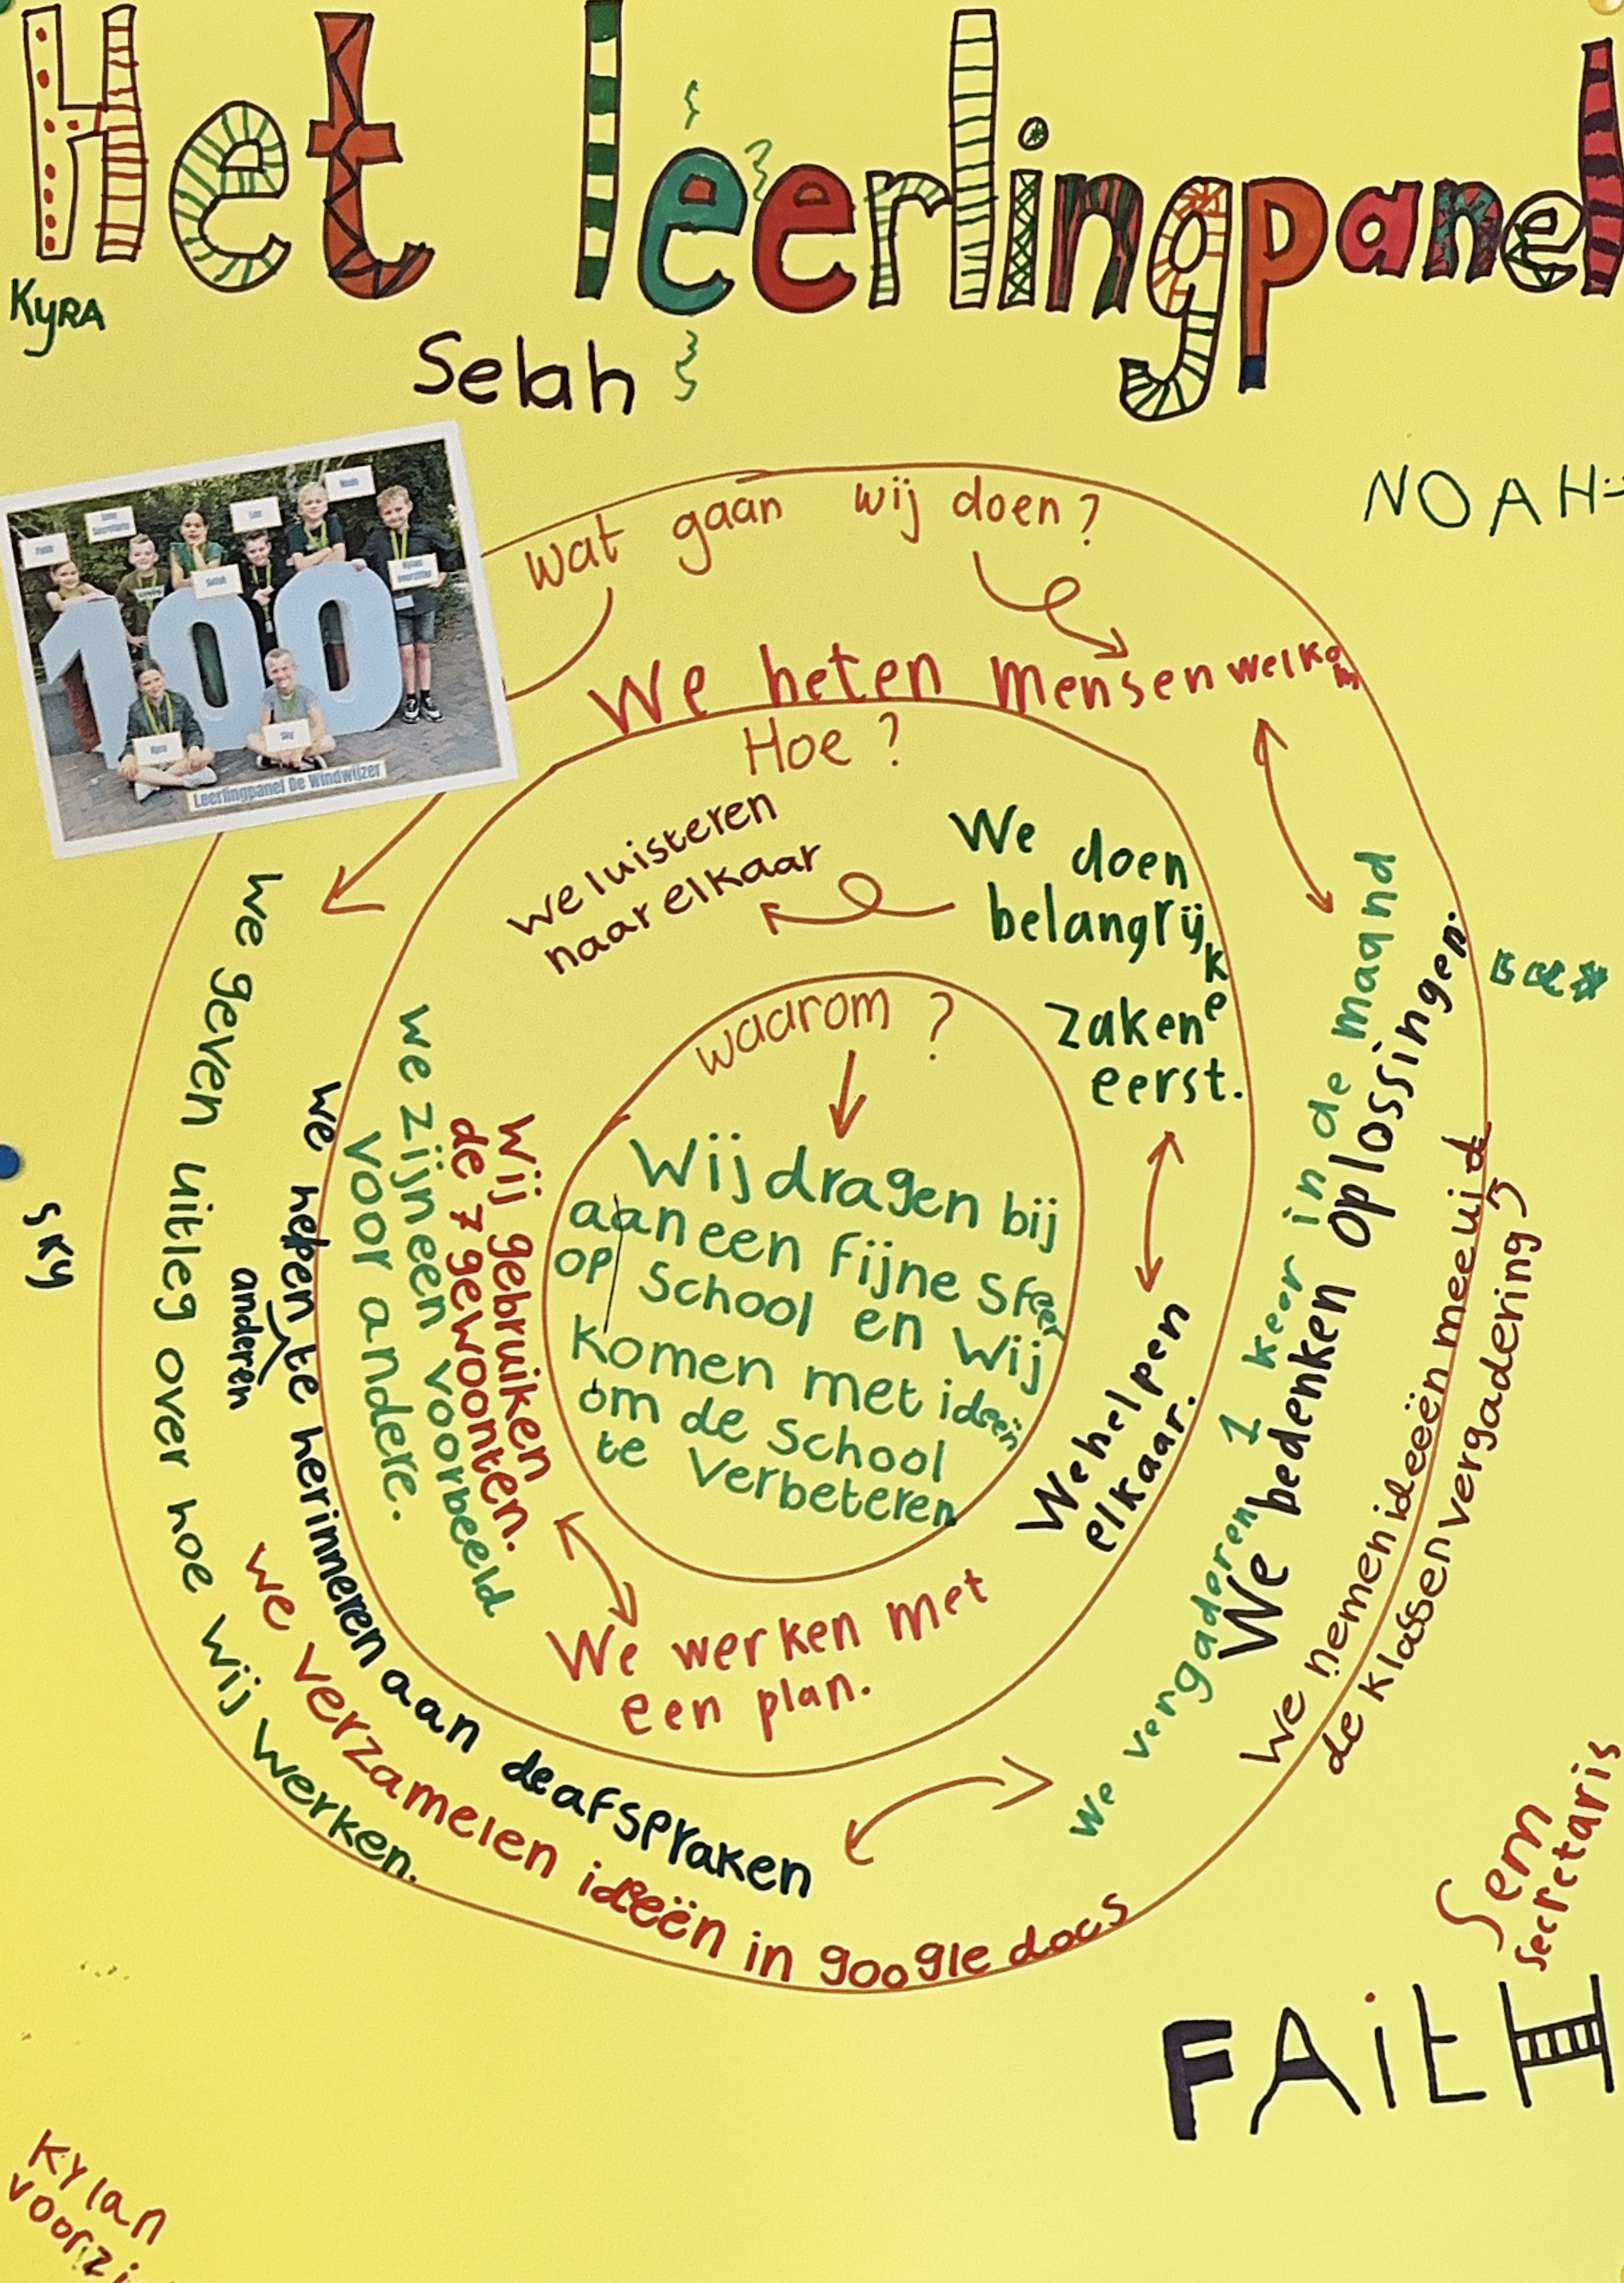 Het leerlingpanel
KyRA
Selah
NOAH
Noah
Selah
Kyra
Sky
Leerlingpanel De Windwijzer
100
wat gaan wij doen?
We heten mensen welkom
Hoe?
We doen
belangrijke
zaken
eerst.
we luisteren
naar elkaar
waarom?
Wij dragen bij
aan een fijne sfeer
op School en Wij
komen met ideeën
om de school
te verbeteren
We helpen
elkaar.
We werken met
een plan.
Wij gebruiken
de 7 gewoonten.
we zijn een voorbeeld
voor andere.
we geven uitleg over hoe wij werken.
we hepen te herinneren aan de afspraken
anderen
we verzamelen ideeën in google docs
We vergaderen 1 keer in de maand
We bedenken oplossingen.
We nemen ideeën mee uit
de klassenvergadering
sky
Sem
Secretaris
FAitH
Kylan
voorzi